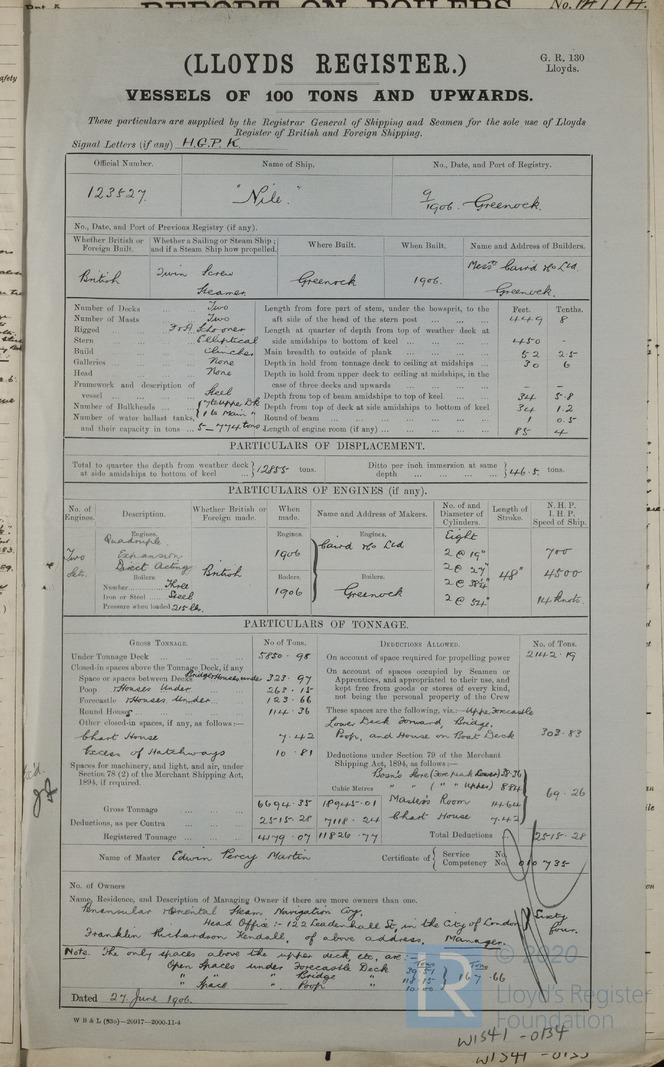 REPORT ON BOILERS
No.
(LLOYDS REGISTER.)
G. R. 130
Lloyds.
VESSELS OF 100 TONS AND UPWARDS.
These particulars are supplied by the Registrar General of Shipping and Seamen for the sole use of Lloyds
Register of British and Foreign Shipping.
Signal Letters (if any) H.G.P.K.
Official Number. Name of Ship. No., Date, and Port of Registry.
123527. "Nile." 9/1906. Greenock.
No., Date, and Port of Previous Registry (if any).
Whether British or Foreign Built. Whether a Sailing or Steam Ship; and if a Steam Ship how propelled. Where Built. When Built. Name and Address of Builders.
British Twin Screw Steamer Greenock 1906. Messrs Caird & Co Ltd. Greenock.
Feet. Tenths.
Number of Decks ... Two
Number of Masts ... Two
Rigged ... F & A Schooner
Stern ... Elliptical
Build ... Clincher
Galleries ... None
Head ... None
Framework and description of vessel ... Steel
Number of Bulkheads ... 7 to upper Dk 1 to Main "
Number of water ballast tanks, and their capacity in tons ... 5 – 774 tons
Length from fore part of stem, under the bowsprit, to the aft side of the head of the stern post ... 449 8
Length at quarter of depth from top of weather deck at side amidships to bottom of keel ... 450 -
Main breadth to outside of plank ... 52 25
Depth in hold from tonnage deck to ceiling at midships ... 30 6
Depth in hold from upper deck to ceiling at midships, in the case of three decks and upwards ... - -
Depth from top of beam amidships to top of keel ... 34 5.8
Depth from top of deck at side amidships to bottom of keel 34 1.2
Round of beam ... 1 0.5
Length of engine room (if any) ... 85 4
PARTICULARS OF DISPLACEMENT.
Total to quarter the depth from weather deck at side amidships to bottom of keel ... 12855 tons. Ditto per inch immersion at same depth ... 46.5. tons.
PARTICULARS OF ENGINES (if any).
No. of Engines. Description. Whether British or Foreign made. When made. Name and Address of Makers. No. of and Diameter of Cylinders. Length of Stroke. N.H.P. I.H.P. Speed of Ship.
Two Sets.
Engines.
Quadruple
Expansion
Direct Acting
Boilers
Number Three
Iron or Steel Steel
Pressure when loaded 215 lbs.
British
Engines. 1906
Boilers. 1906
Engines. Caird & Co Ltd
Boilers. Greenock
Eight
2 @ 19"
2 @ 27"
2 @ 38½"
2 @ 54"
48"
700
4500
14 knots.
PARTICULARS OF TONNAGE.
GROSS TONNAGE. No of Tons.
Under Tonnage Deck ... 5850.98
Closed-in spaces above the Tonnage Deck, if any
Space or spaces between Decks Bridge & Houses under 323.97
Poop & Houses Under 263.15
Forecastle & Houses Under 123.66
Round House 114.36
Other closed-in spaces, if any, as follows:—
Chart House 7.42
Excess of Hatchways 10.81
Spaces for machinery, and light, and air, under Section 78 (2) of the Merchant Shipping Act, 1894, if required.
Cubic Metres
Gross Tonnage ... 6694.35 18945.01
Deductions, as per Contra ... 2515.28 7118.24
Registered Tonnage ... 4179.07 11826.77
DEDUCTIONS ALLOWED. No. of Tons.
On account of space required for propelling power 2142.19
On account of spaces occupied by Seamen or Apprentices, and appropriated to their use, and kept free from goods or stores of every kind, not being the personal property of the Crew
These spaces are the following, viz.:— Upper Forecastle
Lower Deck Forward, Bridge,
Poop, and House on Boat Deck 303.83
Deductions under Section 79 of the Merchant Shipping Act, 1894, as follows:—
Bosn's Store (Fore peak Lower) 38.36
" " ( " " Upper) 8.84
Master's Room 14.64
Chart House 7.42
69.26
Total Deductions 2515.28
Name of Master Edwin Percy Martin
Certificate of Service No. Competency No. 010735
No. of Owners
Name, Residence, and Description of Managing Owner if there are more owners than one.
Peninsular & Oriental Steam Navigation Coy.
Head Office:- 122 Leadenhall St, in the City of London Sixty four.
Franklin Richardson Kendall, of above address, Manager.
Note. The only spaces above the upper deck, etc, are:-
Tons Tons
Open Spaces under Forecastle Deck 39.51
" " " Bridge " 118.15 167.66
" Space " Poop " 10.00
Dated 27 June 1906.
W B & L (83o)—20917—2000-11-4
© 2020
LR
Lloyd's Register
Foundation
W1541-0134
W1541-0135